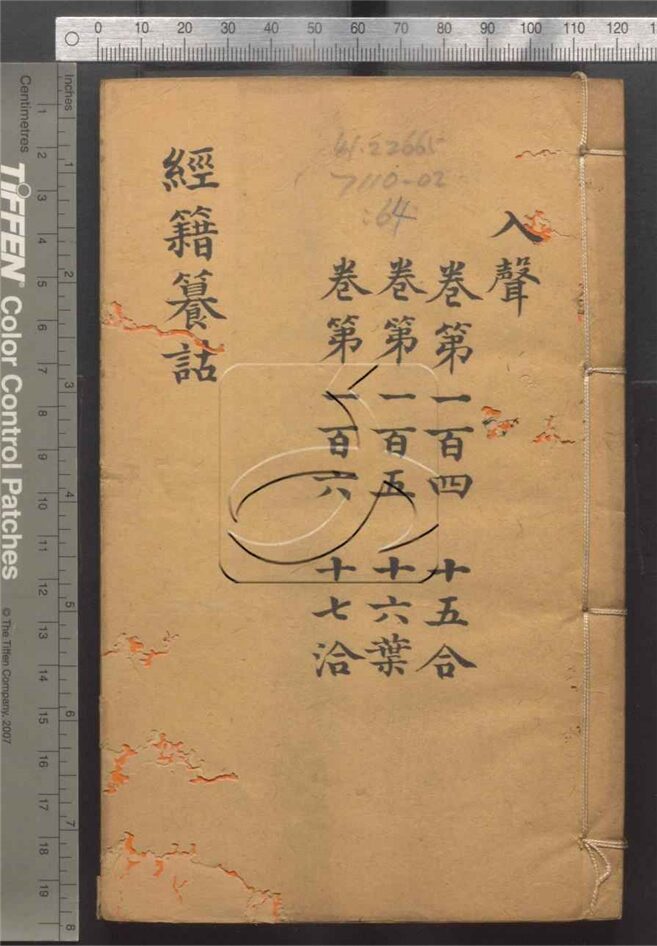 入聲
卷第一百四 十五合
卷第一百五 十六葉
卷第一百六 十七洽
經籍籑詁
7110-02
:64
0 10 20 30 40 50 60 70 80 90 100 110 120
Inches
Centimetres
1 2 3 4 5 6 7 8
1 2 3 4 5 6 7 8 9 10 11 12 13 14 15 16 17 18 19
TIFFEN Color Control Patches
© The Tiffen Company, 2007